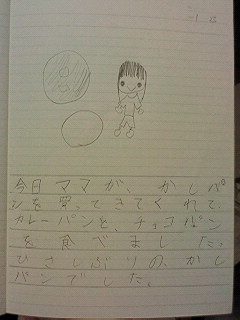 今日ママが、かしパ
ンを買ってきてくれて、
カレーパンと、チョコパン
を食べました。
ひさしぶりの、かし
パンでした。